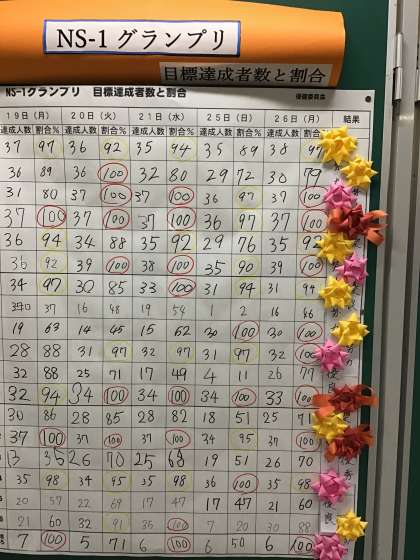 NS-1グランプリ
目標達成者数と割合
NS-1グランプリ 目標達成者数と割合
19日（月） 20日（火） 21日（水） 25日（日） 26日（月） 結果
達成人数 割合% 達成人数 割合% 達成人数 割合% 達成人数 割合% 達成人数 割合%
37 97 36 92 35 94 35 89 38 97
36 89 36 100 32 80 29 72 30 79
31 80 37 100 37 100 36 97 37 100
37 100 37 100 37 100 36 97 37 100
36 94 34 88 35 92 29 76 35 92
36 92 39 100 38 100 35 90 39 100
34 97 30 85 33 100 31 94 31 94
37 16 48 19 54 1 2 16 46
19 63 14 45 15 62 30 100 30 100
28 88 31 97 32 97 31 97 32 100
32 88 25 71 17 49 4 11 26 77
32 94 34 100 34 100 34 100 33 100
30 86 28 85 28 82 18 51 25 71
37 100 37 100 37 100 34 95 37 100
13 35 26 70 25 68 19 51 26 70
35 98 34 95 35 98 36 100 35 98
20 57 22 69 17 47 17 47 21 60
21 60 32 91 35 100 7 20 30 88 良
7 100 5 71 6 100 6 50 6 100